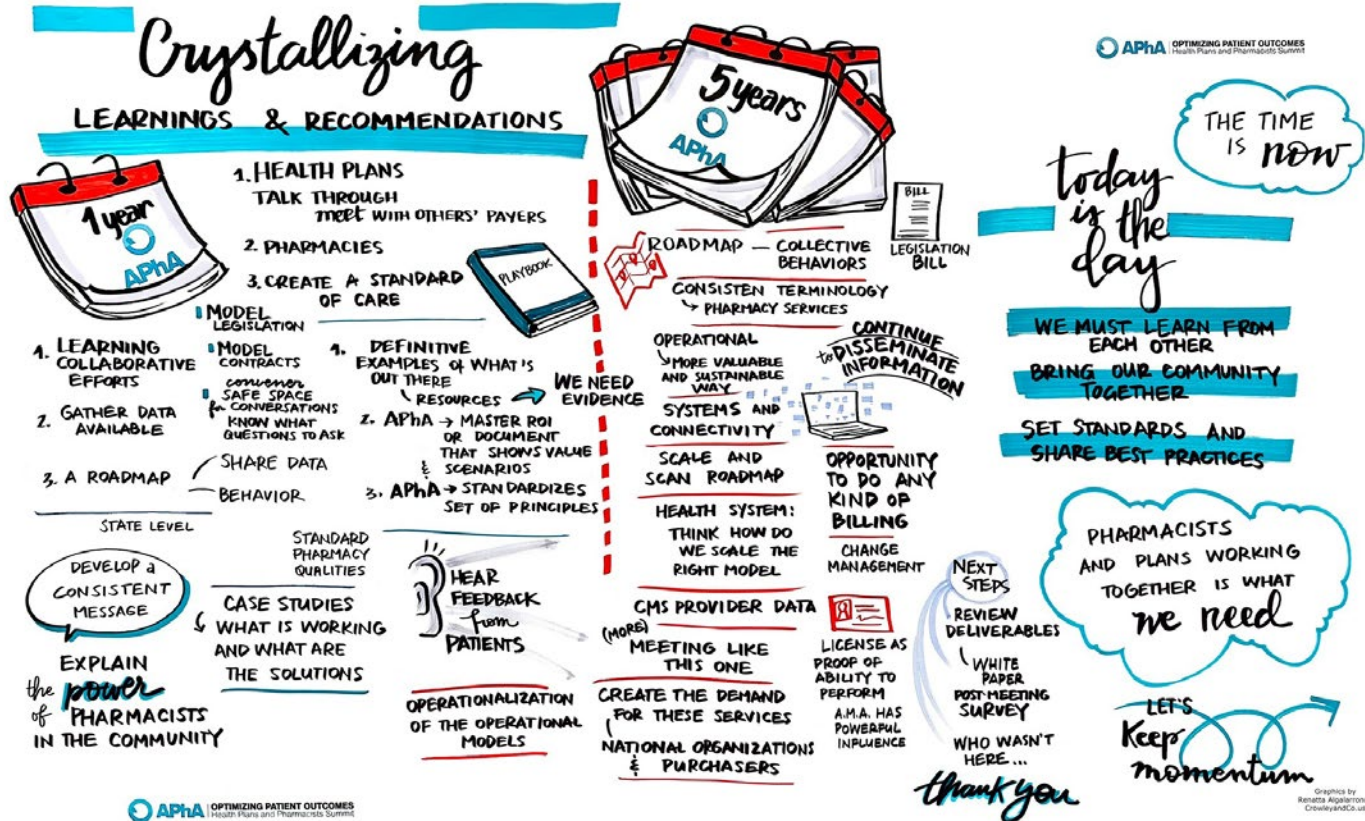 Crystallizing
LEARNINGS & RECOMMENDATIONS
1 year
APhA
1. HEALTH PLANS
TALK THROUGH
meet WITH OTHERS' PAYERS
2. PHARMACIES
3. CREATE A STANDARD
OF CARE
PLAYBOOK
MODEL
LEGISLATION
MODEL
CONTRACTS
convener
SAFE SPACE
for CONVERSATIONS
KNOW WHAT
QUESTIONS TO ASK
1. LEARNING
COLLABORATIVE
EFFORTS
2. GATHER DATA
AVAILABLE
3. A ROADMAP
SHARE DATA
BEHAVIOR
1. DEFINITIVE
EXAMPLES OF WHAT'S
OUT THERE
RESOURCES
WE NEED
EVIDENCE
2. APhA → MASTER ROI
OR DOCUMENT
THAT SHOWS VALUE
& SCENARIOS
3. APhA → STANDARDIZES
SET OF PRINCIPLES
STATE LEVEL
DEVELOP a
CONSISTENT
MESSAGE
EXPLAIN
the power
of PHARMACISTS
IN THE COMMUNITY
STANDARD
PHARMACY
QUALITIES
CASE STUDIES
WHAT IS WORKING
AND WHAT ARE
THE SOLUTIONS
HEAR
FEEDBACK
from
PATIENTS
OPERATIONALIZATION
OF THE OPERATIONAL
MODELS
APhA OPTIMIZING PATIENT OUTCOMES
Health Plans and Pharmacists Summit
5 years
APhA
BILL
LEGISLATION
BILL
ROADMAP — COLLECTIVE
BEHAVIORS
CONSISTEN TERMINOLOGY
PHARMACY SERVICES
OPERATIONAL
MORE VALUABLE
AND SUSTAINABLE
WAY
CONTINUE
to DISSEMINATE
INFORMATION
SYSTEMS AND
CONNECTIVITY
SCALE AND
SCAN ROADMAP
HEALTH SYSTEM:
THINK HOW DO
WE SCALE THE
RIGHT MODEL
OPPORTUNITY
TO DO ANY
KIND OF
BILLING
CHANGE
MANAGEMENT
CMS PROVIDER DATA
(MORE)
MEETING LIKE
THIS ONE
CREATE THE DEMAND
FOR THESE SERVICES
NATIONAL ORGANIZATIONS
& PURCHASERS
LICENSE AS
PROOF OF
ABILITY TO
PERFORM
A.M.A. HAS
POWERFUL
INFLUENCE
NEXT
STEPS
REVIEW
DELIVERABLES
WHITE
PAPER
POST-MEETING
SURVEY
WHO WASN'T
HERE...
thank you
APhA OPTIMIZING PATIENT OUTCOMES
Health Plans and Pharmacists Summit
THE TIME
IS now
today
is the
day
WE MUST LEARN FROM
EACH OTHER
BRING OUR COMMUNITY
TOGETHER
SET STANDARDS AND
SHARE BEST PRACTICES
PHARMACISTS
AND PLANS WORKING
TOGETHER IS WHAT
we need
LET'S
Keep
momentum
Graphics by
Renatta Algalarrondo
CrowleyandCo.us